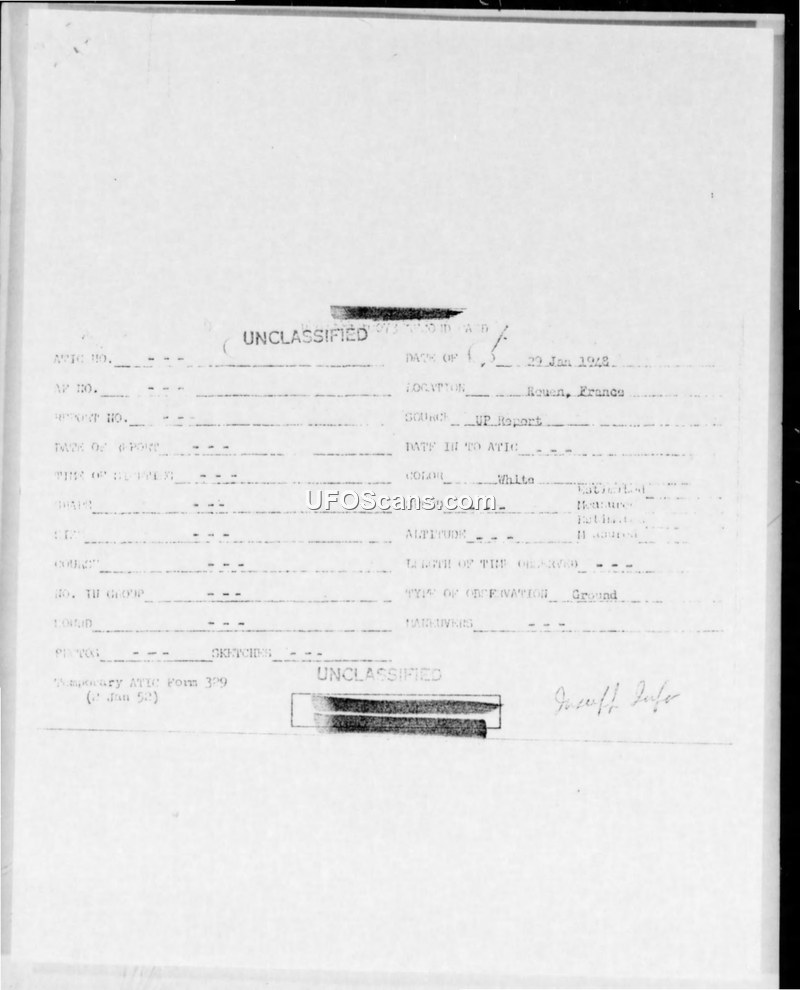 UNCLASSIFIED CARD
ATIC NO. - - - DATE OF 29 Jan 1948
AF NO. - - - LOCATION Rouen, France
REPORT NO. - - - SOURCE UP Report
DATE OF REPORT - - - DATE IN TO ATIC - - -
TIME OF SIGHTING - - - COLOR White
SHAPE - - - Estimated
UFOScans.com Measured
SIZE - - - ALTITUDE - - - Estimated
Measured
COURSE - - - LENGTH OF TIME OBSERVED - - -
NO. IN GROUP - - - TYPE OF OBSERVATION Ground
SOUND - - - MANEUVERS - - -
PHOTOS - - - SKETCHES - - -
Temporary ATIC Form 329
(2 Jan 52)
UNCLASSIFIED
Insuff Info